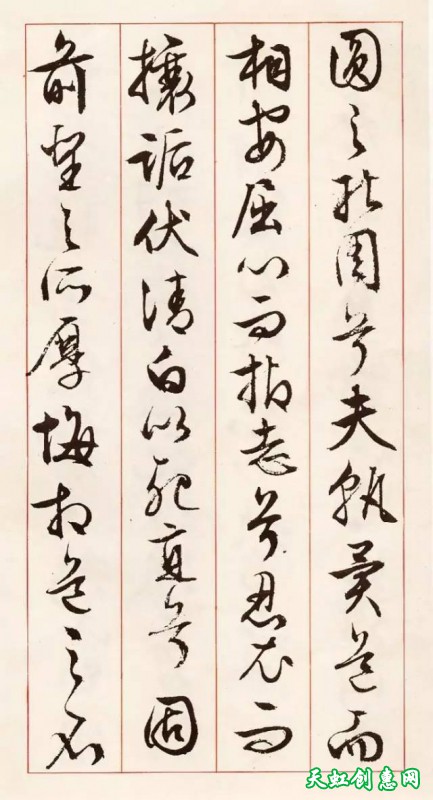 圓之能周兮夫孰異道而
相安屈心而抑志兮忍尤而
攘詬伏清白以死直兮固
前聖之所厚悔相道之不
天虹创意网